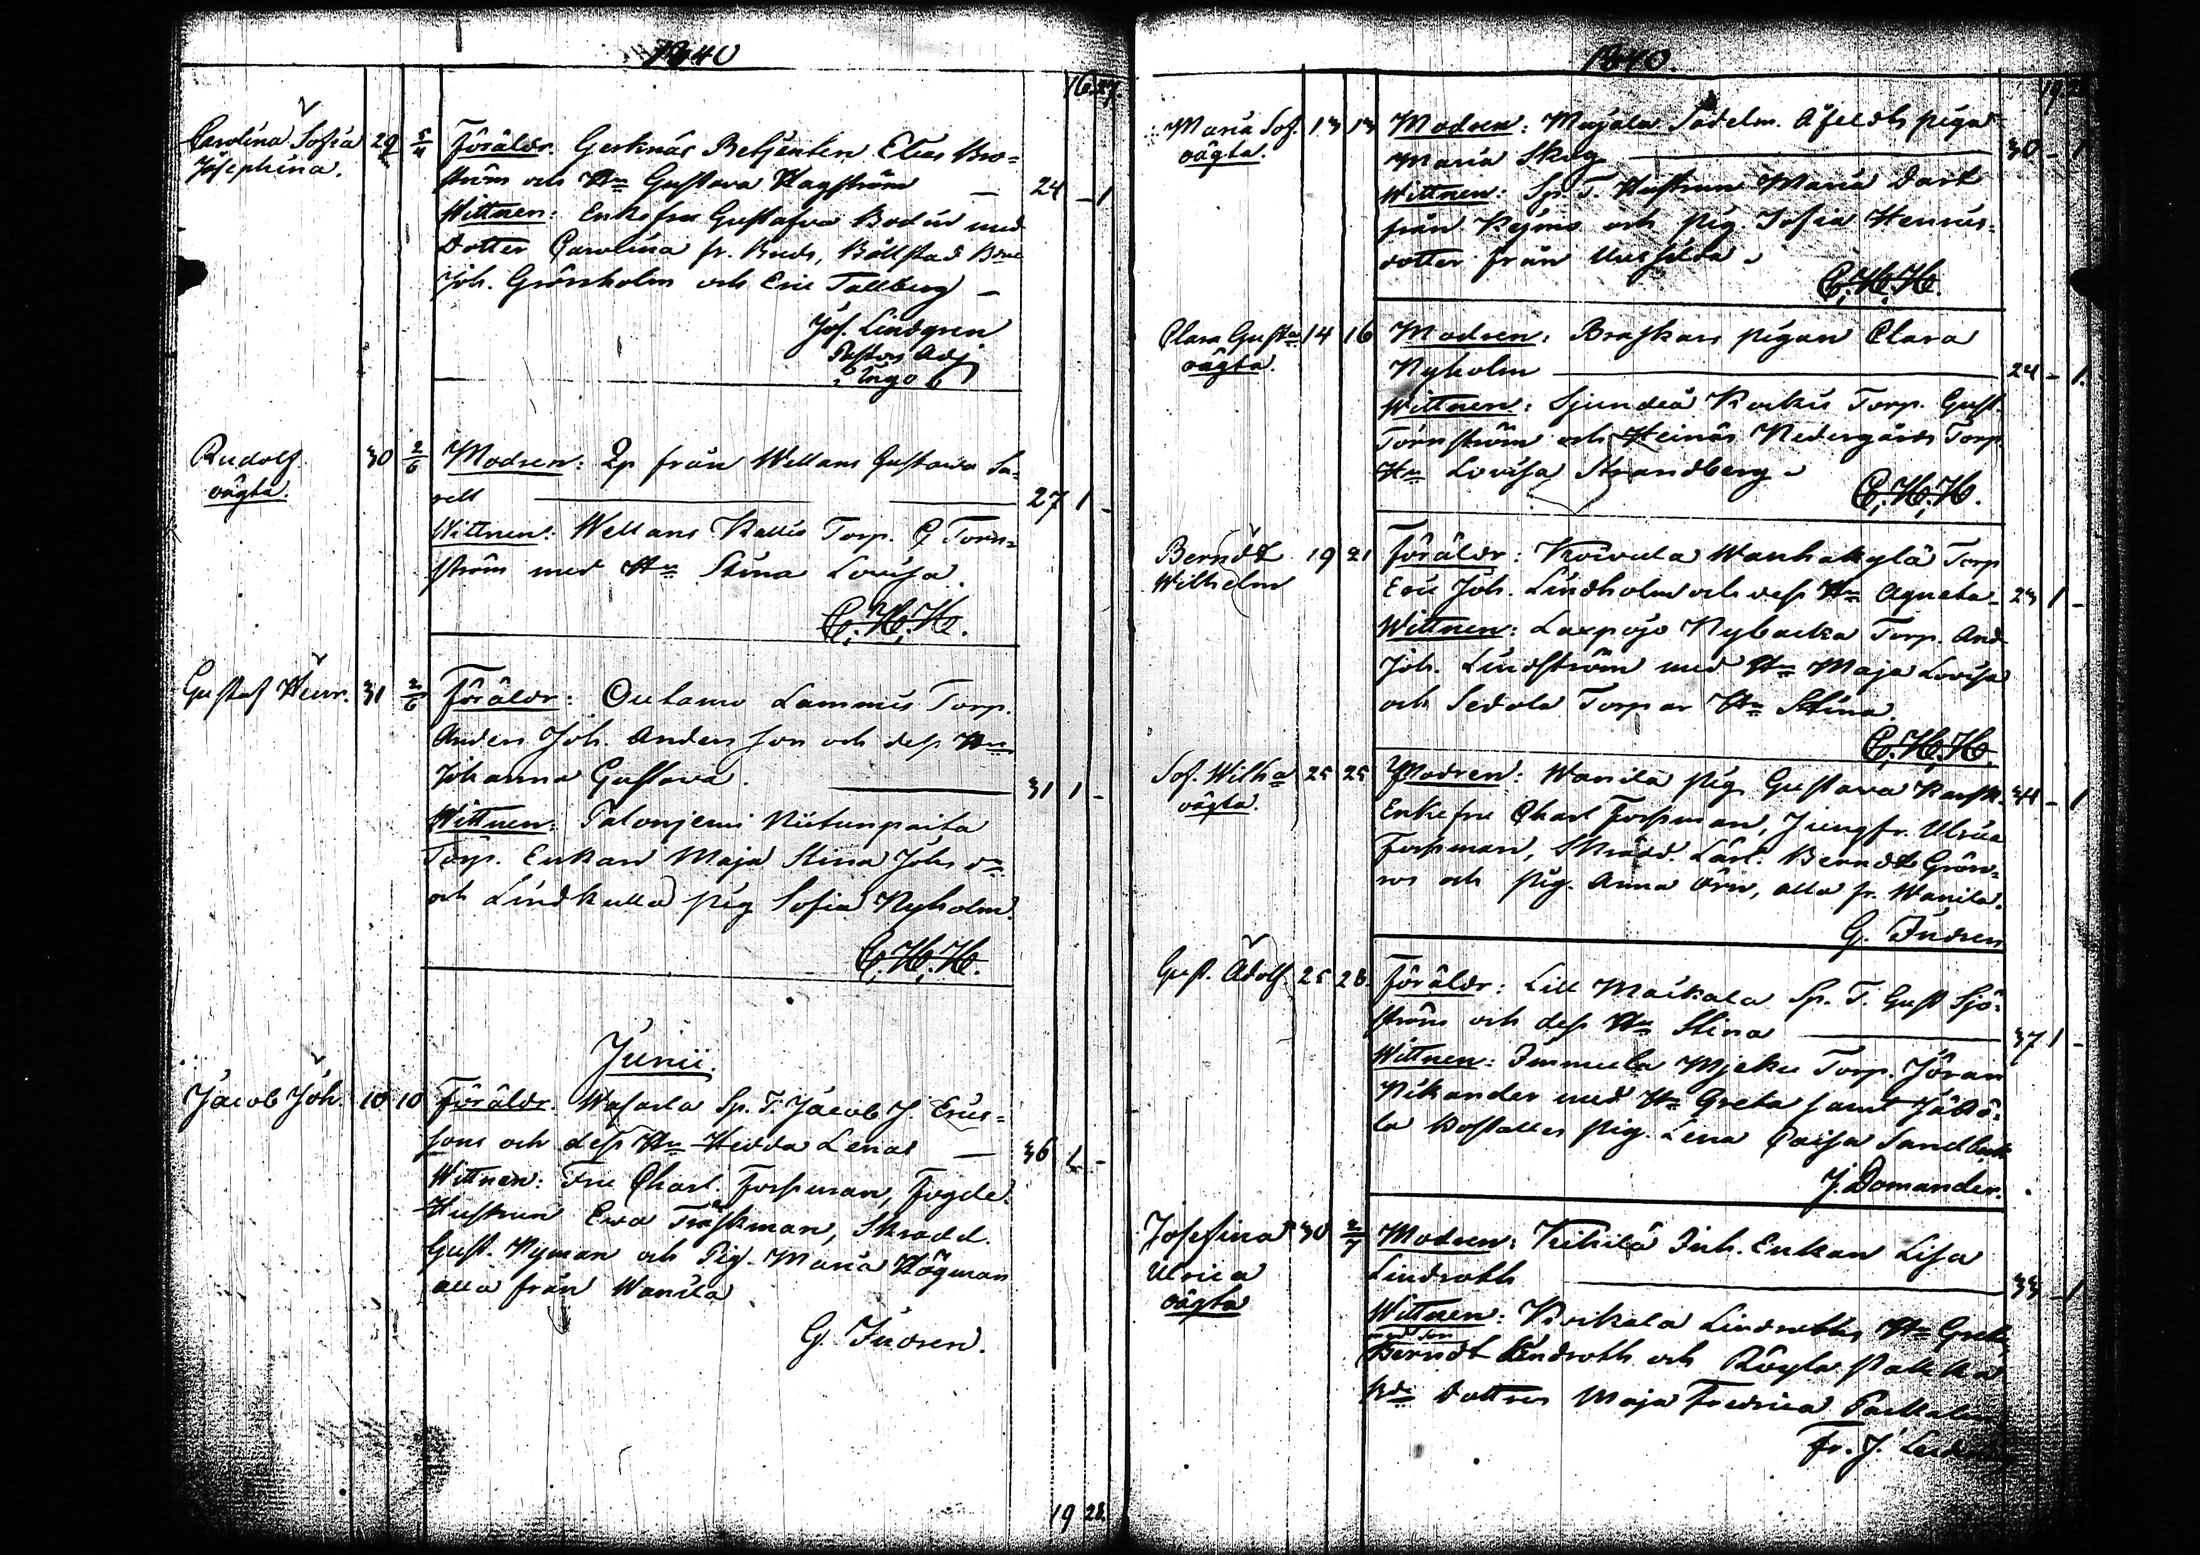 1840
16 27.
Carolina Sofia 29 5/4 Föräldr. Gerknäs Betjenten Elias Bro=
Josephina.
ström och Hn Gustava Hagström — 24 – 1
Wittnen: Enkefru Gustafva Bodin med
Dotter Carolina fr.
Joh. Grönholm och Eric Tallberg —
Jos. Lindgren
Pastors Adj
i Ingo
Rudolf 30 2/6 Modren: Qp från Wellans Gustava Sa=
oägta.
rell 27 1 –
Wittnen: Wellans Kallis Torp. G Törn=
ström med Hu Stina Lovisa.
C. H. H.
Gustaf Henr. 31 2/6 Föräldr: Outamo Lammis Torp.
Anders Joh. Andersson och dess Hu
Johanna Gustava. 31 1 –
Wittnen: Talonjemi Niitunpaita
Torp. Enkan Maja Stina Johsdr
och Lindkulla pig Sofia Nyholm.
C. H. H.
Junii.
Jacob Joh. 10 10 Föräldr. Wasarla Sp. T. Jacob J. Erics=
sons och dess Hu Hedda Lenas — 36 1 –
Wittnen: Fru Charl. Forssman, Fogde.
Hustrun Eva Träskman, Skradd.
Gust. Nyman och Pig. Maria Högman
alla från Wanila
G. Indren.
19 28.
1840.
19 28
Maria Sof. 13 13 Modren: Marjala Sadelm. Åfeldts piga
oägta.
Maria Skog — 30 – 1
Wittnen: Sp. T. Hustrun Maria Dort
från och pig. Sofia Henrics=
dotter från
C. H. H.
Clara Gusta 14 16 Modren: Braskars pigan Clara
oägta.
Nyholm — 24 – 1.
Wittnen: Sjundeå Torp. Gust.
Törnström och Heinäs Nedergårds Torp
Hu Lovisa Strandberg
C. H. H.
Berndt 19 21 Föräldr: Koivula Wanhakylä Torp
Wilhelm
Eric Joh. Lindholm och dess Hu Agneta – 23 1 –
Wittnen: Laxpojo Nybacka Torp. And
Joh. Lindström med Hu Maja Lovisa
och Sedola Torpar Hu Stina.
C. H. H.
Sof. Wilha 25 25 Modren: Wanila pig. Gustava 34 – 1
oägta.
Enkefru Charl Forssman, Jungfr. Ulrica
Forssman, Skrädd. Lärl. Berndt Grön=
ros och pig. Anna Örn, alla fr. Wanila.
G. Indren
Gust. Adolf. 25 28 Föräldr: Lill Maikala Sp. T. Gust Sjö=
ströms och dess Hu Stina — 37 1 –
Wittnen: Immula Mjeku Torp. Jöran
Nikander med Hu Greta samt
la Bostalles pig. Lena Caisa Sandbäck
J. Domander.
Josefina 30 2/7 Modren: Kihilä Inh. Enkan Lisa
Ulrica
oägta
Lindroth — 33 – 1
Wittnen: Kirkala Lindroths Hu Greta
med son
Berndt Lindroth och Rögla
Dottren Maja Fredrica
Fr. J.